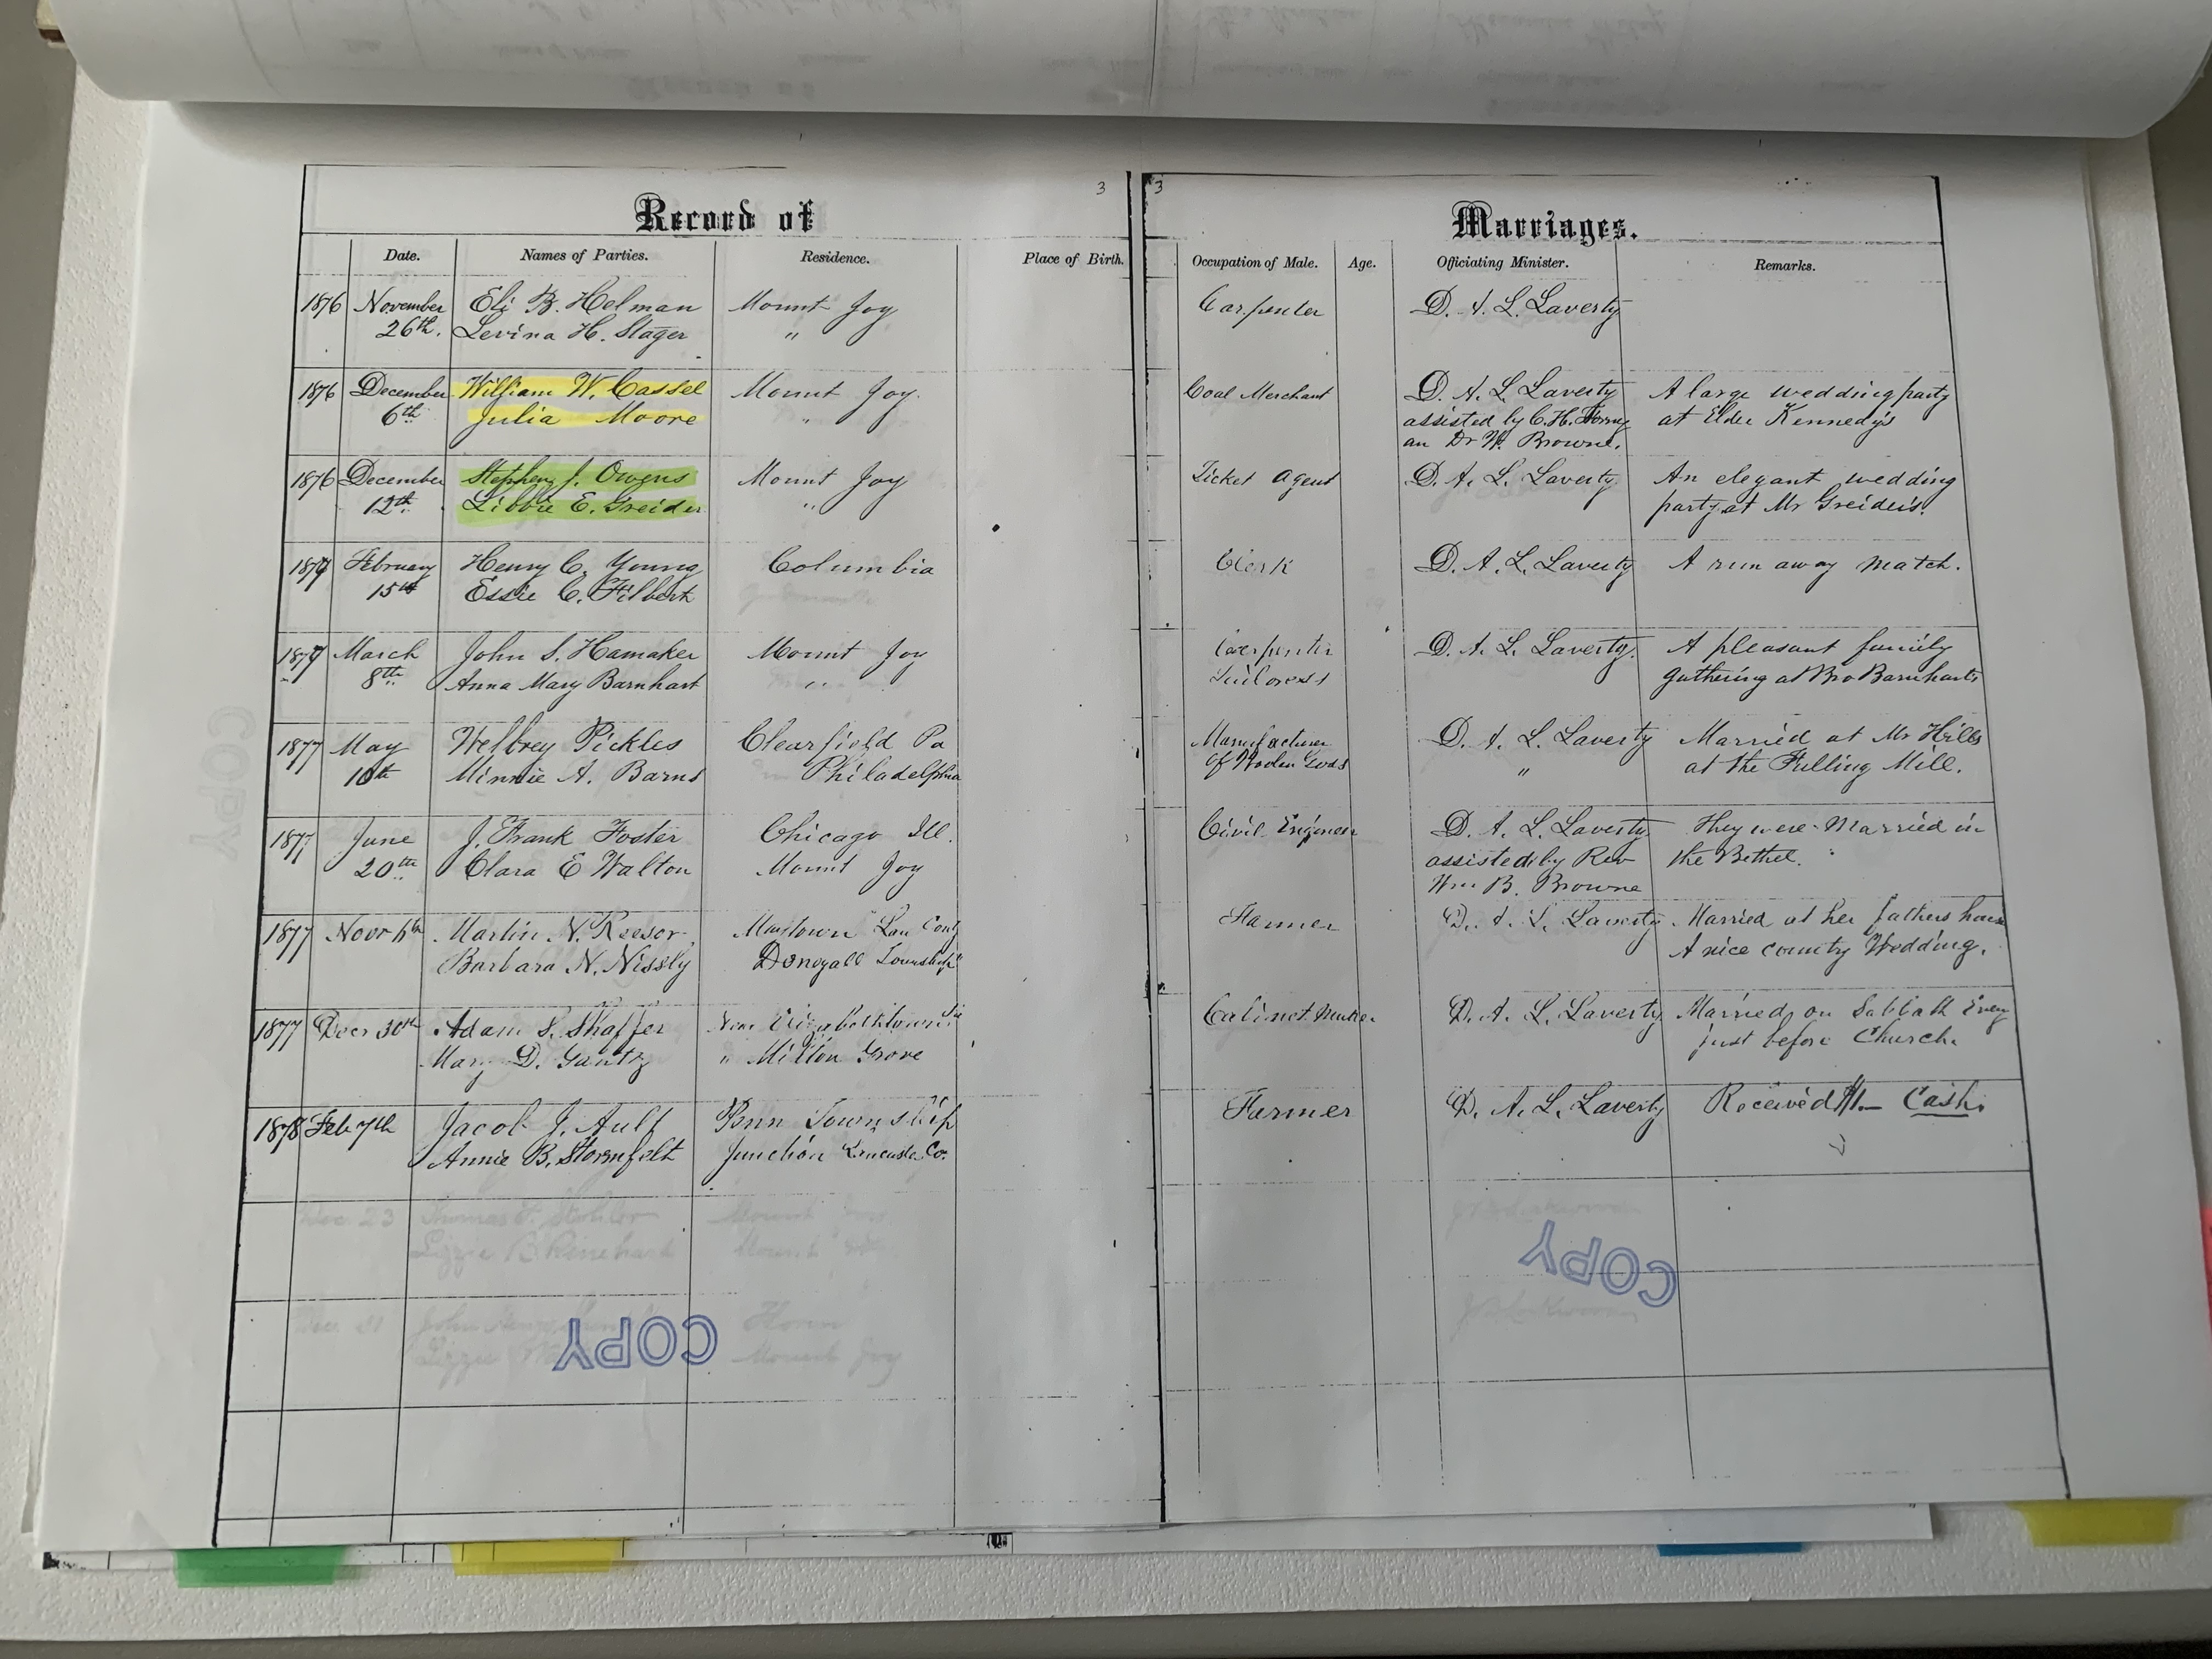 3 3
Record of Marriages.
Date. Names of Parties. Residence. Place of Birth. Occupation of Male. Age. Officiating Minister. Remarks.
1876 November Eli B. Helman Mount Joy Carpenter D. A. L. Laverty
26th. Levina H. Stager "
1876 December William W. Cassel Mount Joy. Coal Merchant D. A. L. Laverty A large wedding party
6th Julia Moore " assisted by C. H. at Elder Kennedy's
an Dr W. Browne.
1876 December Stephen J. Owens Mount Joy Ticket Agent D. A. L. Laverty An elegant wedding
12th. Libbie E. Greider " party at Mr Greider's.
1877 February Henry C. Young Columbia Clerk D. A. L. Laverty A run away match.
15th Essie C. Filbert
1877 March John S. Hamaker Mount Joy Carpenter D. A. L. Laverty. A pleasant family
8th Anna Mary Barnhart " Tailoress gathering at Bro Barnharts
1877 May Welbrey Pickles Clearfield Pa Manufacturer D. A. L. Laverty Married at Mr Hills
10th Minnie A. Barns Philadelphia of Woolen Goods " at the Fulling Mill.
1877 June J. Frank Foster Chicago Ill. Civil Engineer D. A. L. Laverty They were Married in
20th Clara E Walton Mount Joy assisted by Rev the Bethel.
Wm B. Browne
1877 Novr 6th Martin N. Reesor Maytown Lan County Farmer D. A. L. Laverty Married at her fathers house
Barbara N. Nissly Donegall Township A nice county Wedding.
1877 Decr 30th Adam S. Shaffer Near Elizabethtown Cabinet Maker D. A. L. Laverty Married on Sabbath Eveng
Mary D. Gantz " Milton Grove just before Church.
1878 Feb 7th Jacob J. Ault Penn Township Farmer D. A. L. Laverty Received $1— Cash.
Annie B. Stormfelt Junction Lancaster Co.
Dec. 23 Thomas F. Mount Joy
Lizzie B Rinehard Mount Joy
COPY
John
Lizzie Mount Joy
COPY
COPY